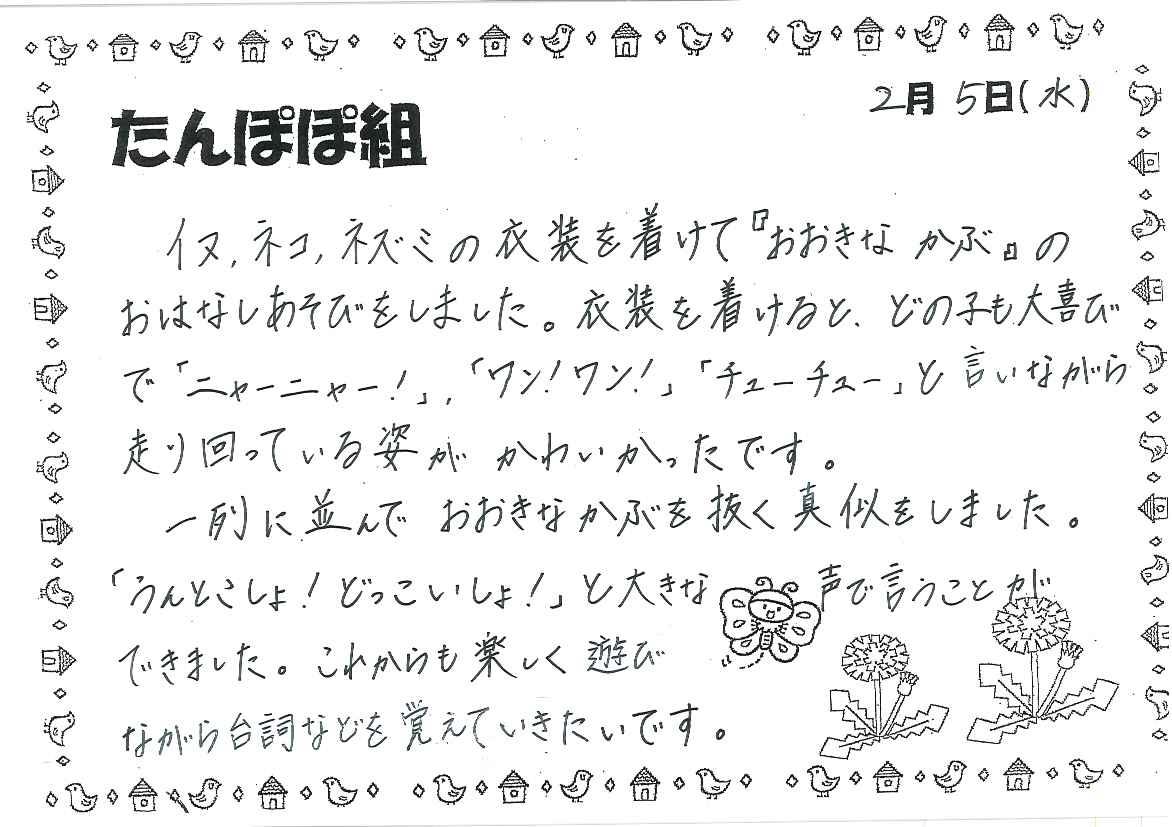 2月 5日(水)
たんぽぽ組
イヌ,ネコ,ネズミの衣装を着けて『おおきな かぶ』の
おはなしあそびをしました。衣装を着けると、どの子も大喜び
で「ニャーニャー!」,「ワン!ワン!」「チューチュー」と言いながら
走り回っている姿がかわいかったです。
一列に並んでおおきなかぶを抜く真似をしました。
「うんとこしょ!どっこいしょ!」と大きな声で言うことが
できました。これからも楽しく遊び
ながら台詞などを覚えていきたいです。